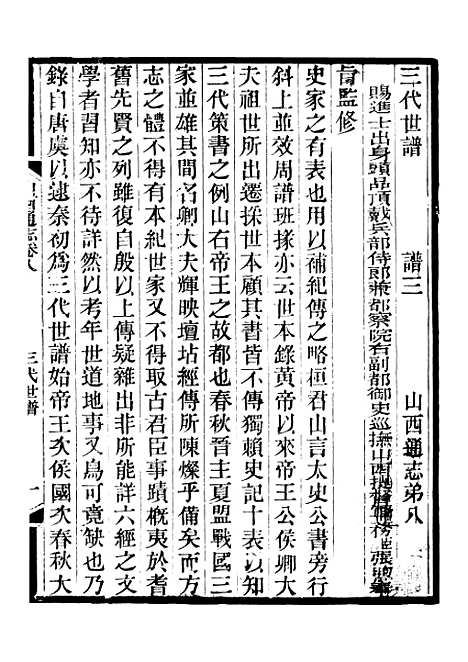 三代世譜　譜三　山西通志第八
賜進士出身頭品頂戴兵部侍郎兼都察院右副都御史巡撫山西提督鹽務臣張煦奉
旨監修
史家之有表也用以補紀傳之略桓君山言太史公書旁行
斜上並效周譜班掾亦云世本錄黃帝以來帝王公侯卿大
夫祖世所出遷採世本顧其書皆不傳獨賴史記十表以知
三代策書之例山右帝王之故都也春秋晉主夏盟戰國三
家並雄其間名卿大夫輝映壇坫經傳所陳燦乎備矣而方
志之體不得有本紀世家並不得取古君臣事蹟概夷於耆
舊先賢之列雖復自殷以上傳疑雜出非所能詳六經之文
學者習知亦不待詳然以考年世道地事又烏可竟缺也乃
錄自唐虞以逮秦初爲三代世譜始帝王次侯國次春秋大
山西通志卷八
三代世譜
一